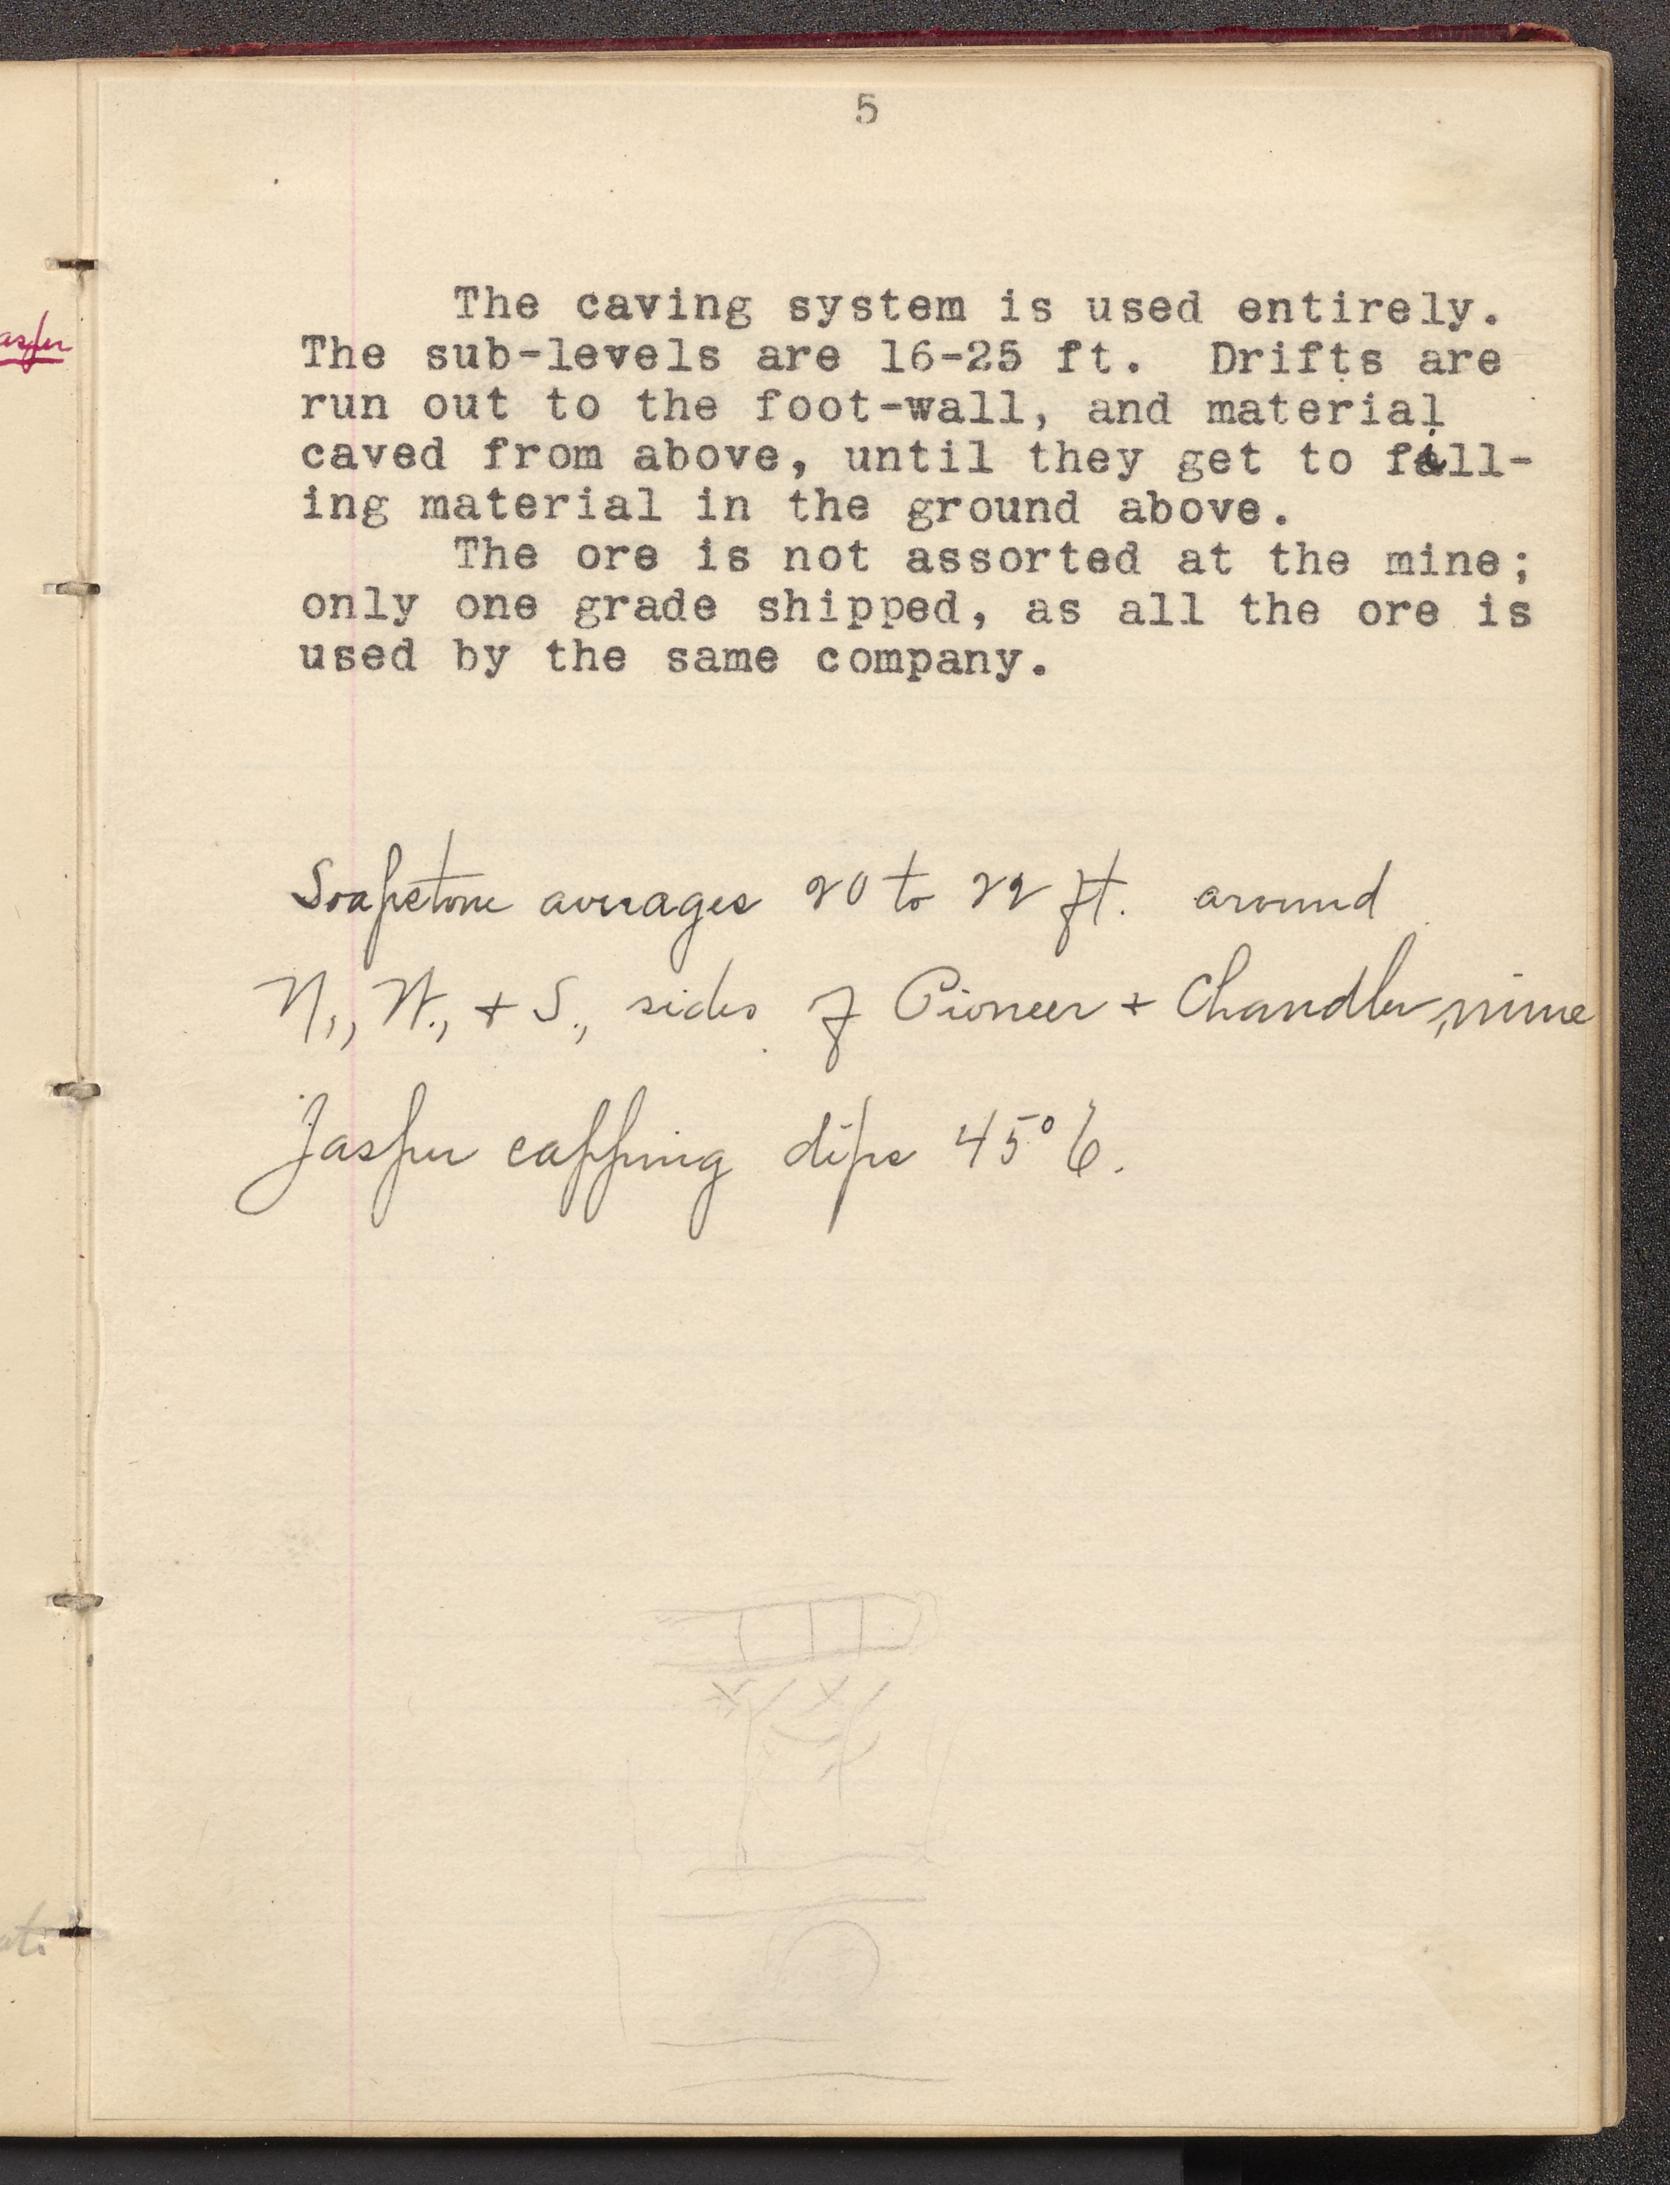 5
The caving system is used entirely.
The sub-levels are 16-25 ft. Drifts are
run out to the foot-wall, and material
caved from above, until they get to fill-
ing material in the ground above.
The ore is not assorted at the mine;
only one grade shipped, as all the ore is
used by the same company.
Soapstone averages 20 to 22 ft. around
N., W., + S., sides of Pioneer + Chandler, mine
Jasper capping dips 45° E.